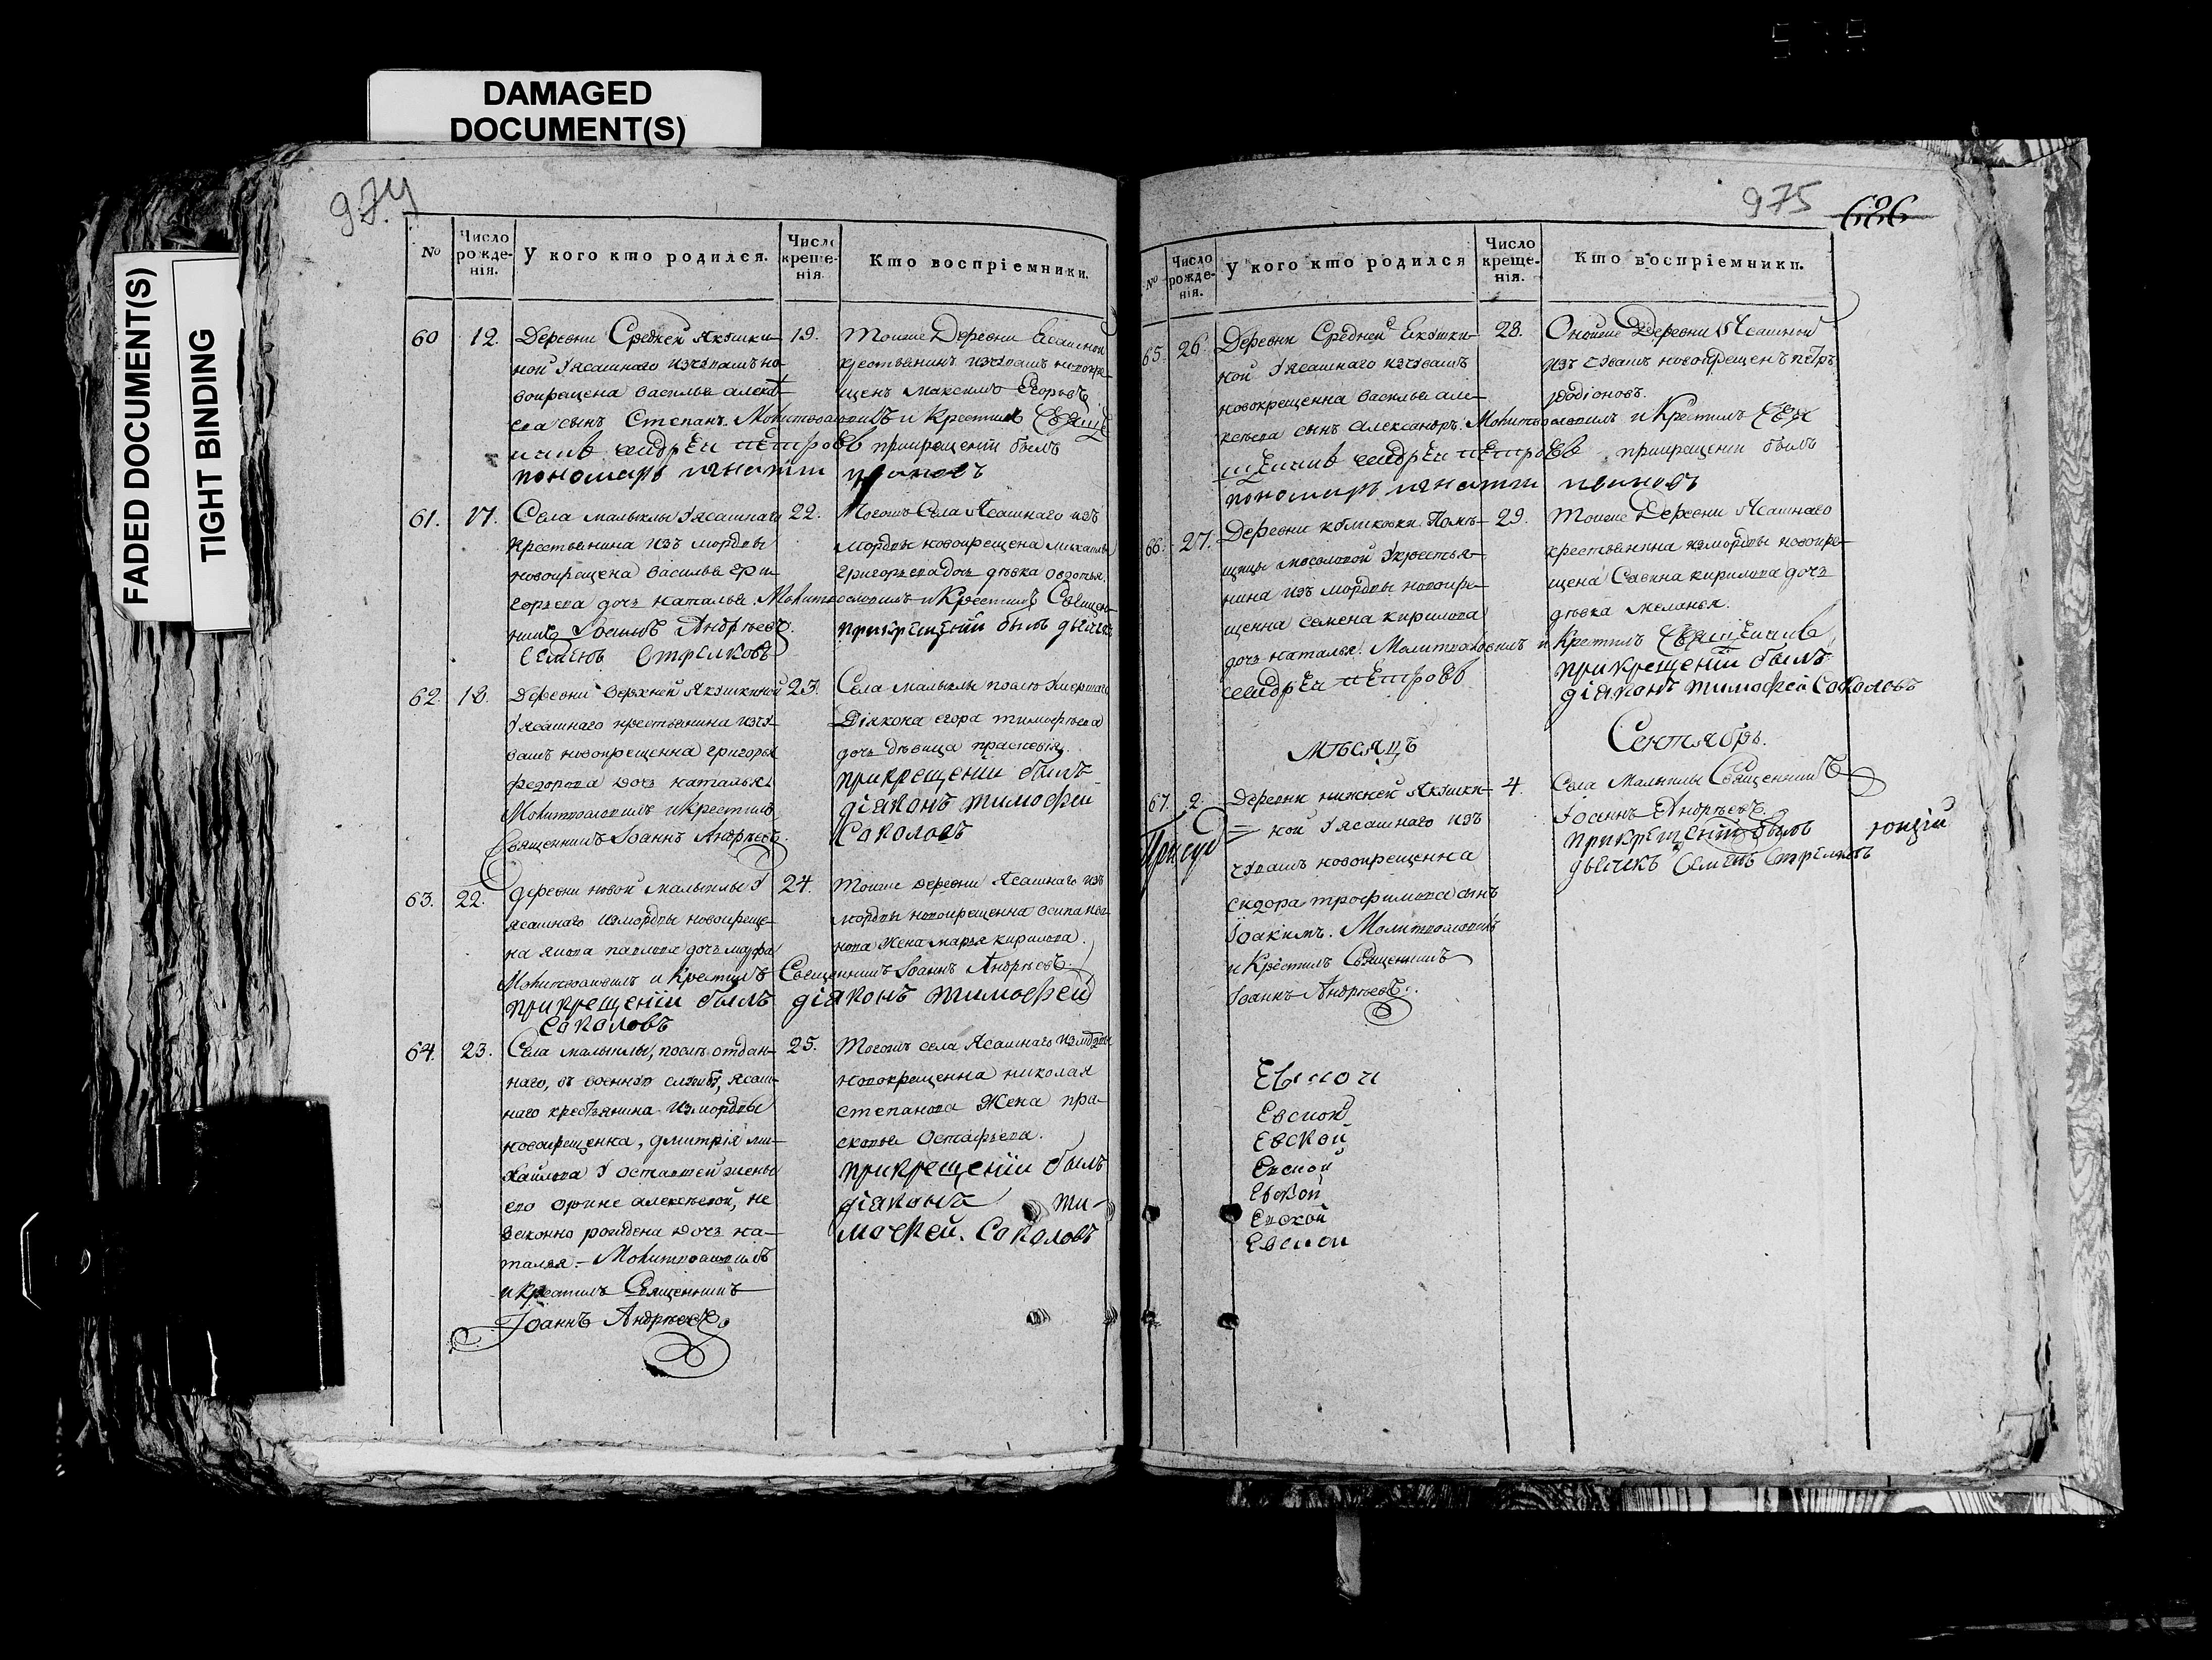 DAMAGED
DOCUMENT(S)
FADED DOCUMENT(S)
TIGHT BINDING
974
№
Число рожде-нія.
У кого кто родился.
Число креще-нія
Кто воспріемники.
60
12.
Деревни Средней Якушки-
ной Уясашнаго изчувашъ но-
вокрещена василья алекѣ-
ева сынъ Степанъ. Молитвословилъ и Крестилъ Свяще
нникъ андрей петровъ прикрещенiи былъ
пономарь игнатiй ивановъ
19.
Тоиже Деревни Ясашной
крестьянинъ изчувашъ новокре-
щенъ максимъ Егоровъ
61.
17.
Села малыклы Уясашнаго
крестьянина изъ мордвы
новокрещена василья гри-
горьева дочь наталья. Молитвословилъ и Крестилъ Священ-
никъ Iоаннъ Андрѣевъ.
Семенъ Стрелковъ
22.
Тогожъ Села Ясашнаго изъ
мордвы новокрещена михайлы
григорьева дочь дѣвка овдотья.
прикрещенiи былъ дьячекъ
62.
18.
Деревни верхней Якушкиной
Уясашнаго крестьянина изчу-
вашъ новокрещенна григорья
федорова дочь наталья
Молитвословилъ и крестилъ
Священникъ Iоаннъ Андрѣевъ.
23.
Села малыклы послѣ умершаго
Дiякона егора тимофѣева
дочь дѣвица праскевiя.
прикрещенiи былъ
дiаконъ тимофей
Соколовъ
63.
22.
деревни новой малыклы У
ясашнаго измордвы новокреще-
на якова павлова дочь марфа
Молитвословилъ и Крестилъ Священникъ Iоаннъ Андрѣевъ.
прикрещенiи былъ дiаконъ тимофей
Соколовъ
24.
Тоиже деревни Ясашнаго изъ
мордвы новокрещенна осипа ива-
нова жена марья кирилова.
64.
23.
Села малыклы, послѣ отдан-
наго, въ военную службу, ясаш-
наго крестьянина измордвы
новокрещенна, дмитрiя ми-
хайлова У оставшей жены
его орине алексѣевой, не
законно рождена дочь на-
талья. - Молитвословилъ
и крестилъ Священникъ
Iоаннъ Андрѣевъ.
25.
Тогожъ села Ясашнаго измордвы
новокрещенна николая
степанова Жена пра-
сковья Остафьева.
прикрещенiи былъ
дiаконъ ти-
мофей. Соколовъ
975
626
№
Число рожде-нія.
У кого кто родился
Число креще-нія.
Кто воспріемники.
65.
26.
Деревни Средней Екушки-
ной Уясашнаго изчувашъ
новокрещенна василья але-
ксѣева сынъ александръ. Молитвословилъ и Крестилъ Свя
щенникъ андрей петровъ прикращенiи былъ
пономарь игнатiй ивановъ
28.
Оноиже Деревни Ясашной
изъ чувашъ новокрещенъ петръ
родiоновъ.
66.
27.
Деревни куликовки Помѣ-
щицы мосоловой Укрестья-
нина изъ мордвы новокре-
щенна семена кирилова
дочь наталья. Молитвословилъ и Крестилъ Священникъ
андрей петровъ
29.
Тоиже Деревни Ясашнаго
крестьянина измордвы новокре-
щена Савина кирилова дочь
дѣвка меланья.
прикрещенiи былъ
дiаконъ тимофей Соколовъ
Мѣсяцъ Сентябрь.
67.
2.
Деревни нижней Якушки-
ной Уясашнаго изъ
чувашъ новокрещенна
сидора трофимова сынъ
Iоакимъ. Молитвословилъ
и Крестилъ Священникъ
Iоаннъ Андрѣевъ.
4.
Села Малыклы Священникъ
Iоаннъ Андрѣевъ
прикрещенiи былъ
дьячекъ Семенъ Стрелковъ
Присуд
Евской
Евской
Евской
Евской
Евской
Евской